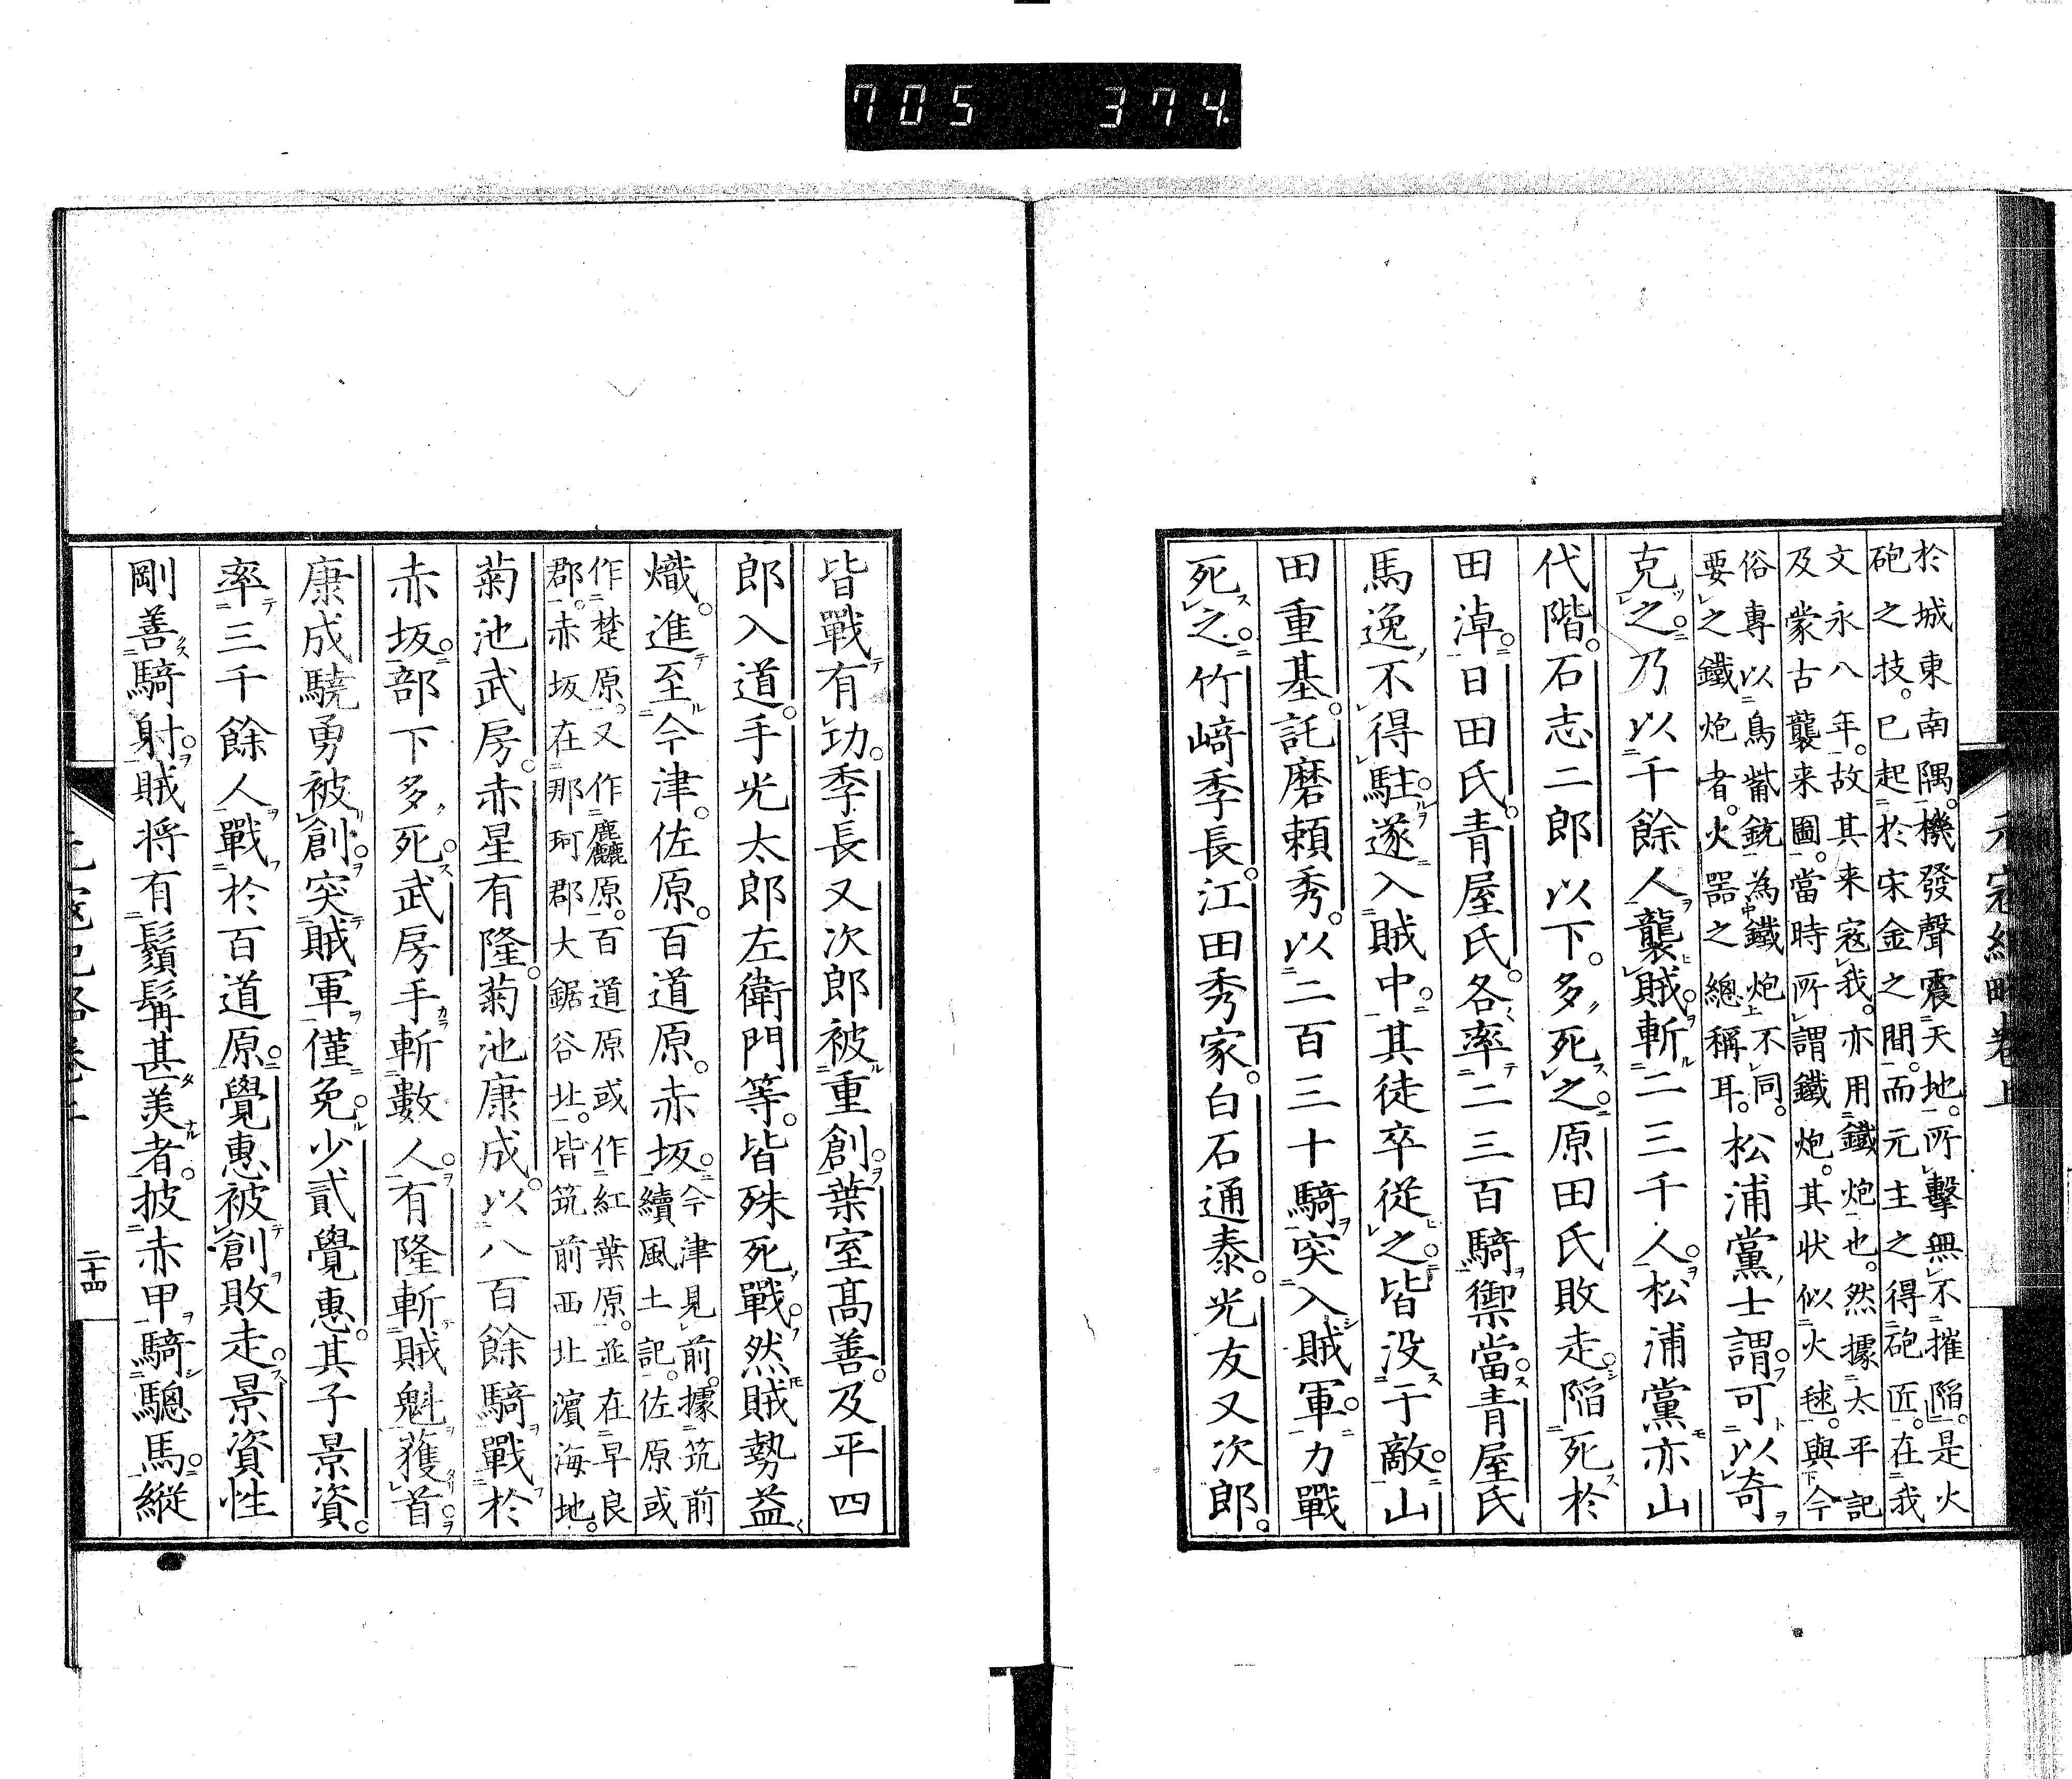 705 374.
於城東南隅。機發聲震天地。所擊無不摧陷。是火
砲之技。已起於宋金之間。而元主之得砲匠。在我
文永八年。故其来寇我。亦用鐵炮也。然據太平記
及蒙古襲来圖。當時所謂鐵炮。其状似火毬。與今
俗專以鳥觜銃為鐵炮不同。
要之鐵炮者。火器之總稱耳。
松浦黨士謂可以奇
克之。乃以千餘人襲賊。斬二三千人。松浦黨亦山
代階。石志二郎以下。多死之。原田氏敗走。陷死於
田淖。日田氏。青屋氏。各率二三百騎禦當。青屋氏
馬逸不得駐。遂入賊中。其徒卒從之。皆没于敵。山
田重基。託磨頼秀。以二百三十騎突入賊軍。力戰
死之。竹﨑季長。江田秀家。白石通泰。光友又次郎。
皆戰有功。季長又次郎被重創。葉室髙善。及平四
郎入道。手光太郎左衛門等。皆殊死戰。然賊勢益
熾。進至今津。佐原。百道原。赤坂。
今津見前。據筑前
續風土記。佐原或
作楚原。又作麤原。百道原或作紅葉原。並在早良
郡。赤坂在那珂郡大鋸谷北。皆筑前西北濵海地。
菊池武房。赤星有隆。菊池康成。以八百餘騎戰於
赤坂。部下多死。武房手斬數人。有隆斬賊魁獲首。
康成驍勇被創。突賊軍僅免。少貳覺惠。其子景資。
率三千餘人戰於百道原。覺惠被創敗走。景資性
剛善騎射。賊将有鬚髯甚美者。披赤甲騎驄馬。縱
元寇紀略卷上
二十四